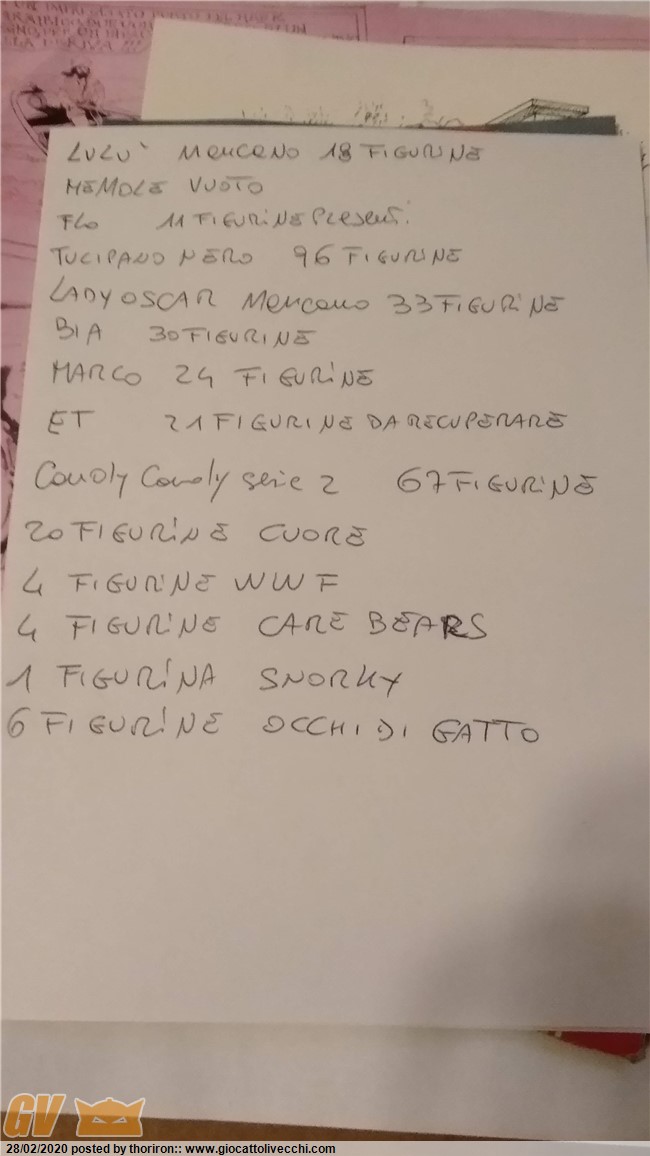 LULU' MANCANO 18 FIGURINE
MEMOLE VUOTO
FLO 11 FIGURINE PRESENTI
TULIPANO NERO 96 FIGURINE
LADY OSCAR MANCANO 33 FIGURINE
BIA 30 FIGURINE
MARCO 24 FIGURINE
ET 21 FIGURINE DA RECUPERARE
Candy Candy serie 2 67 FIGURINE
20 FIGURINE CUORE
4 FIGURINE WWF
4 FIGURINE CARE BEARS
1 FIGURINA SNORKY
6 FIGURINE OCCHI DI GATTO
GV
28/02/2020 posted by thoriron:: www.giocattolivecchi.com